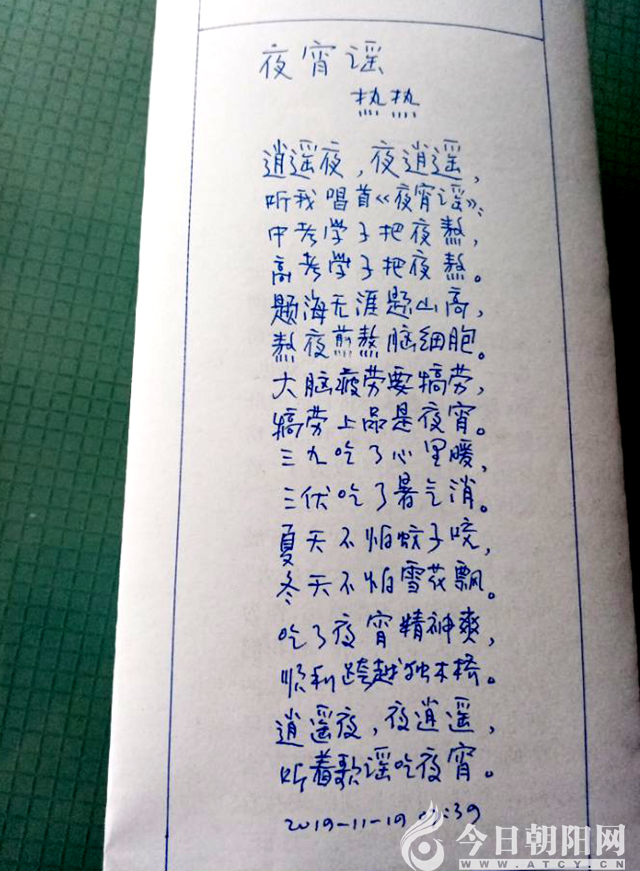 夜宵谣
热热
逍遥夜，夜逍遥，
听我唱首《夜宵谣》：
中考学子把夜熬，
高考学子把夜熬。
题海无涯题山高，
熬夜煎熬脑细胞。
大脑疲劳要犒劳，
犒劳上品是夜宵。
三九吃了心里暖，
三伏吃了暑气消。
夏天不怕蚊子咬，
冬天不怕雪花飘。
吃了夜宵精神爽，
顺利跨越独木桥。
逍遥夜，夜逍遥，
听着歌谣吃夜宵。
2019-11-19
今日朝阳网
WWW.ATCY.CN